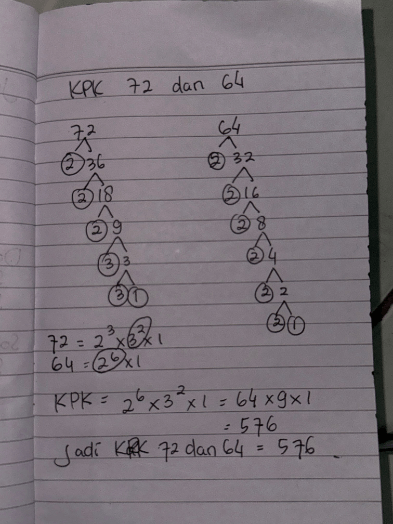 KPK 72 dan 64
72 64
2 36 2 32
2 18 2 16
2 9 2 8
3 3 2 4
3 1 2 2
2 1
72 = 2³ × 3² × 1
64 = 2⁶ × 1
KPK = 2⁶ × 3² × 1 = 64 × 9 × 1
= 576
Jadi KPK 72 dan 64 = 576.